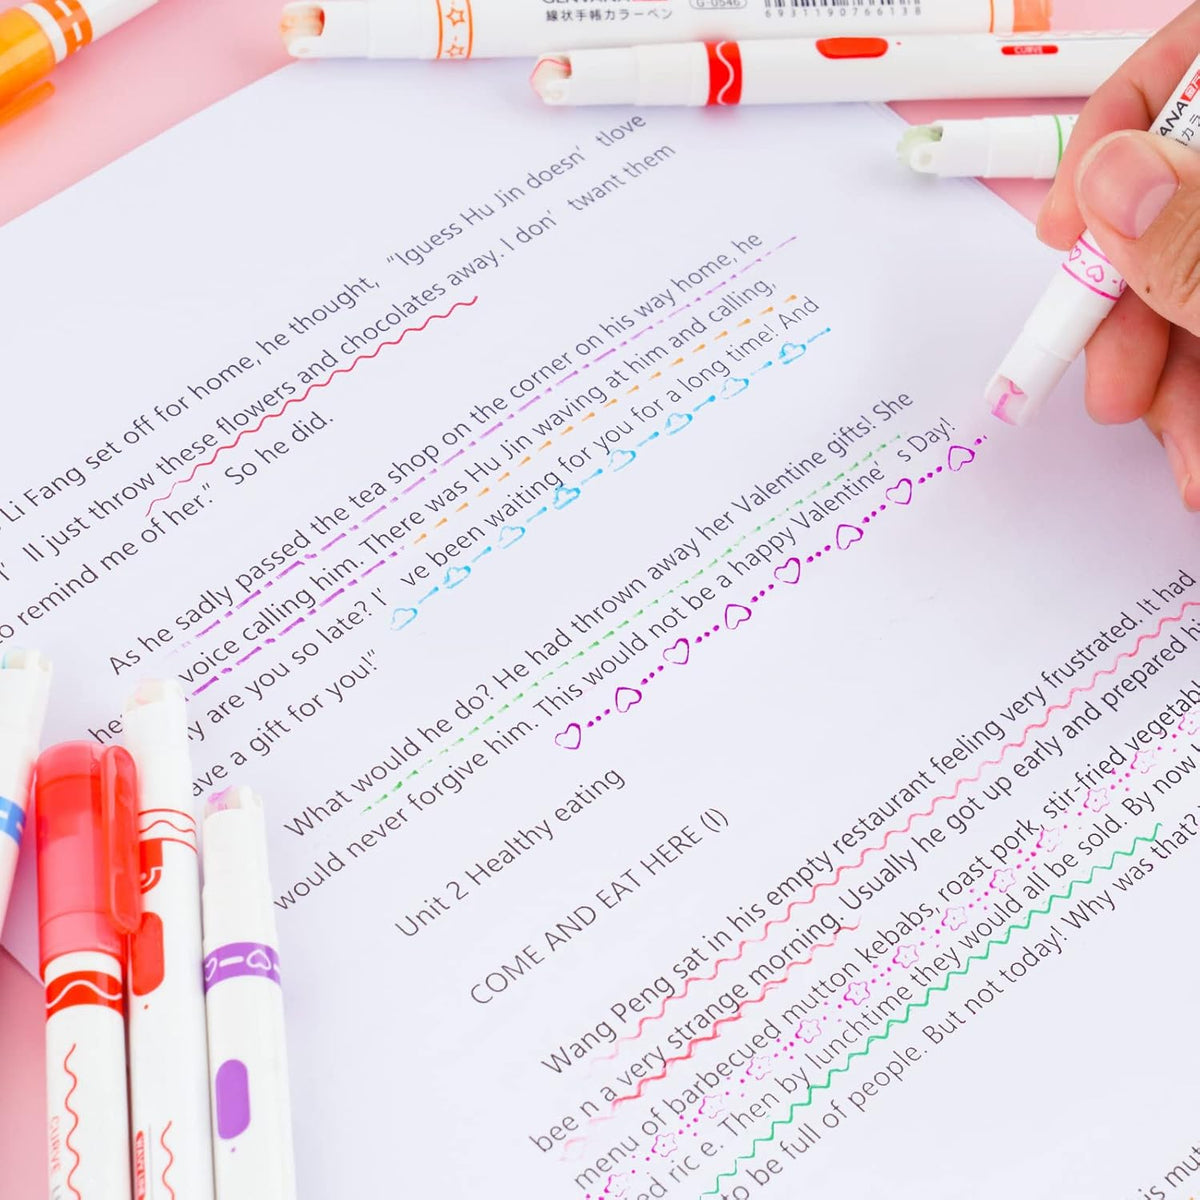 線状手帳カラーペン
G-0546
6931190766138
CURVE
Li Fang set off for home, he thought, “Iguess Hu Jin doesn’ tlove
I’ ll just throw these flowers and chocolates away. I don’ twant them
to remind me of her.” So he did.
As he sadly passed the tea shop on the corner on his way home, he
voice calling him. There was Hu Jin waving at him and calling,
are you so late? I’ ve been waiting for you for a long time! And
a gift for you!”
What would he do? He had thrown away her Valentine gifts! She
would never forgive him. This would not be a happy Valentine’ s Day!
Unit 2 Healthy eating
COME AND EAT HERE (I)
Wang Peng sat in his empty restaurant feeling very frustrated. It had
bee n a very strange morning. Usually he got up early and prepared
menu of barbecued mutton kebabs, roast pork, stir-fried
ric e. Then by lunchtime they would all be sold. By now
to be full of people. But not today! Why was that?
CURVE